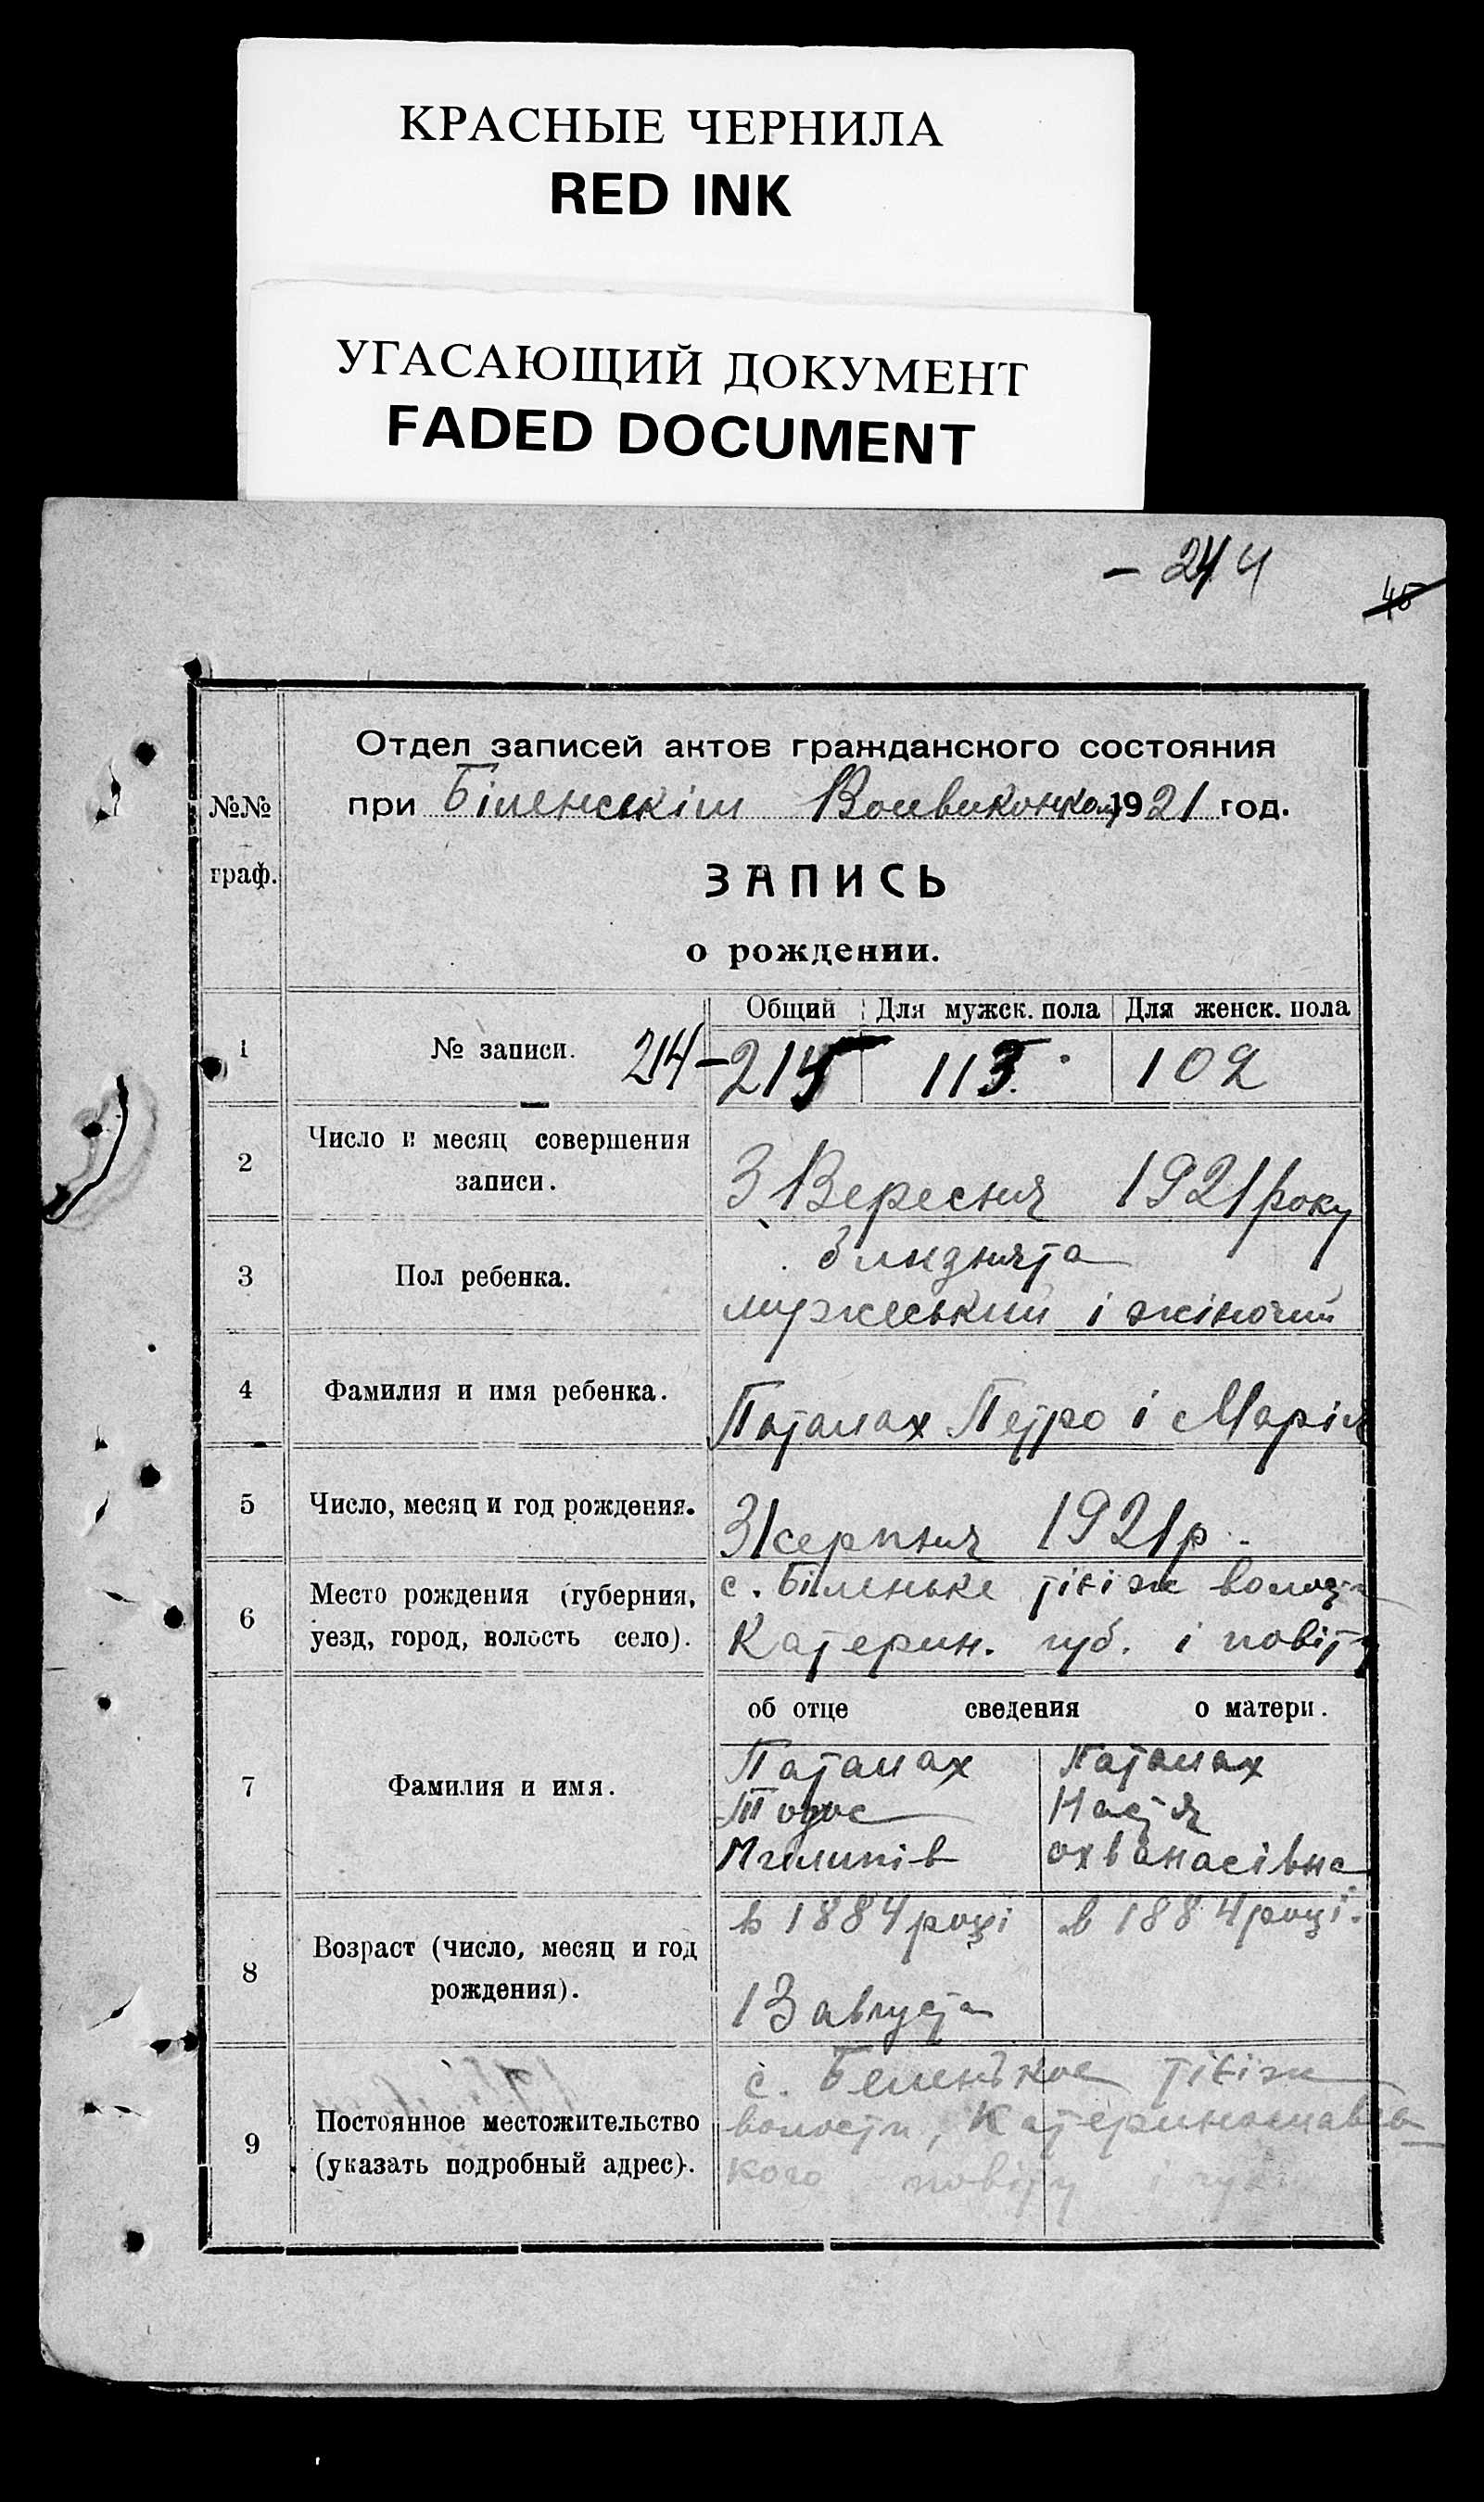 КРАСНЫЕ ЧЕРНИЛА
RED INK
УГАСАЮЩИЙ ДОКУМЕНТ
FADED DOCUMENT
– 244
45
№№ граф.
Отдел записей актов гражданского состояния
при Біленськім Волвиконком 1921 год.
ЗАПИСЬ
о рождении.
Общий Для мужск. пола Для женск. пола
1 № записи. 214 – 215 113. 102
2 Число и месяц совершения записи. 3 Вересня 1921 року
3 Пол ребенка. близнята
мужеський і жіночий
4 Фамилия и имя ребенка. Паталах Петро і Марія
5 Число, месяц и год рождения. 31 серпня 1921 р.
6 Место рождения (губерния, с. Біленьке тієі ж волости
уезд, город, волость село). Катерин. губ. і повіту
об отце сведения о матери.
7 Фамилия и имя. Паталах Паталах
Тодос Настя
Пилипів охванасівна
8 Возраст (число, месяц и год рождения). в 1884 році в 1884 році.
13 августа
9 Постоянное местожительство с. Беленькое тієі ж
(указать подробный адрес). волости, Катеринославсь
кого повіту і губ.